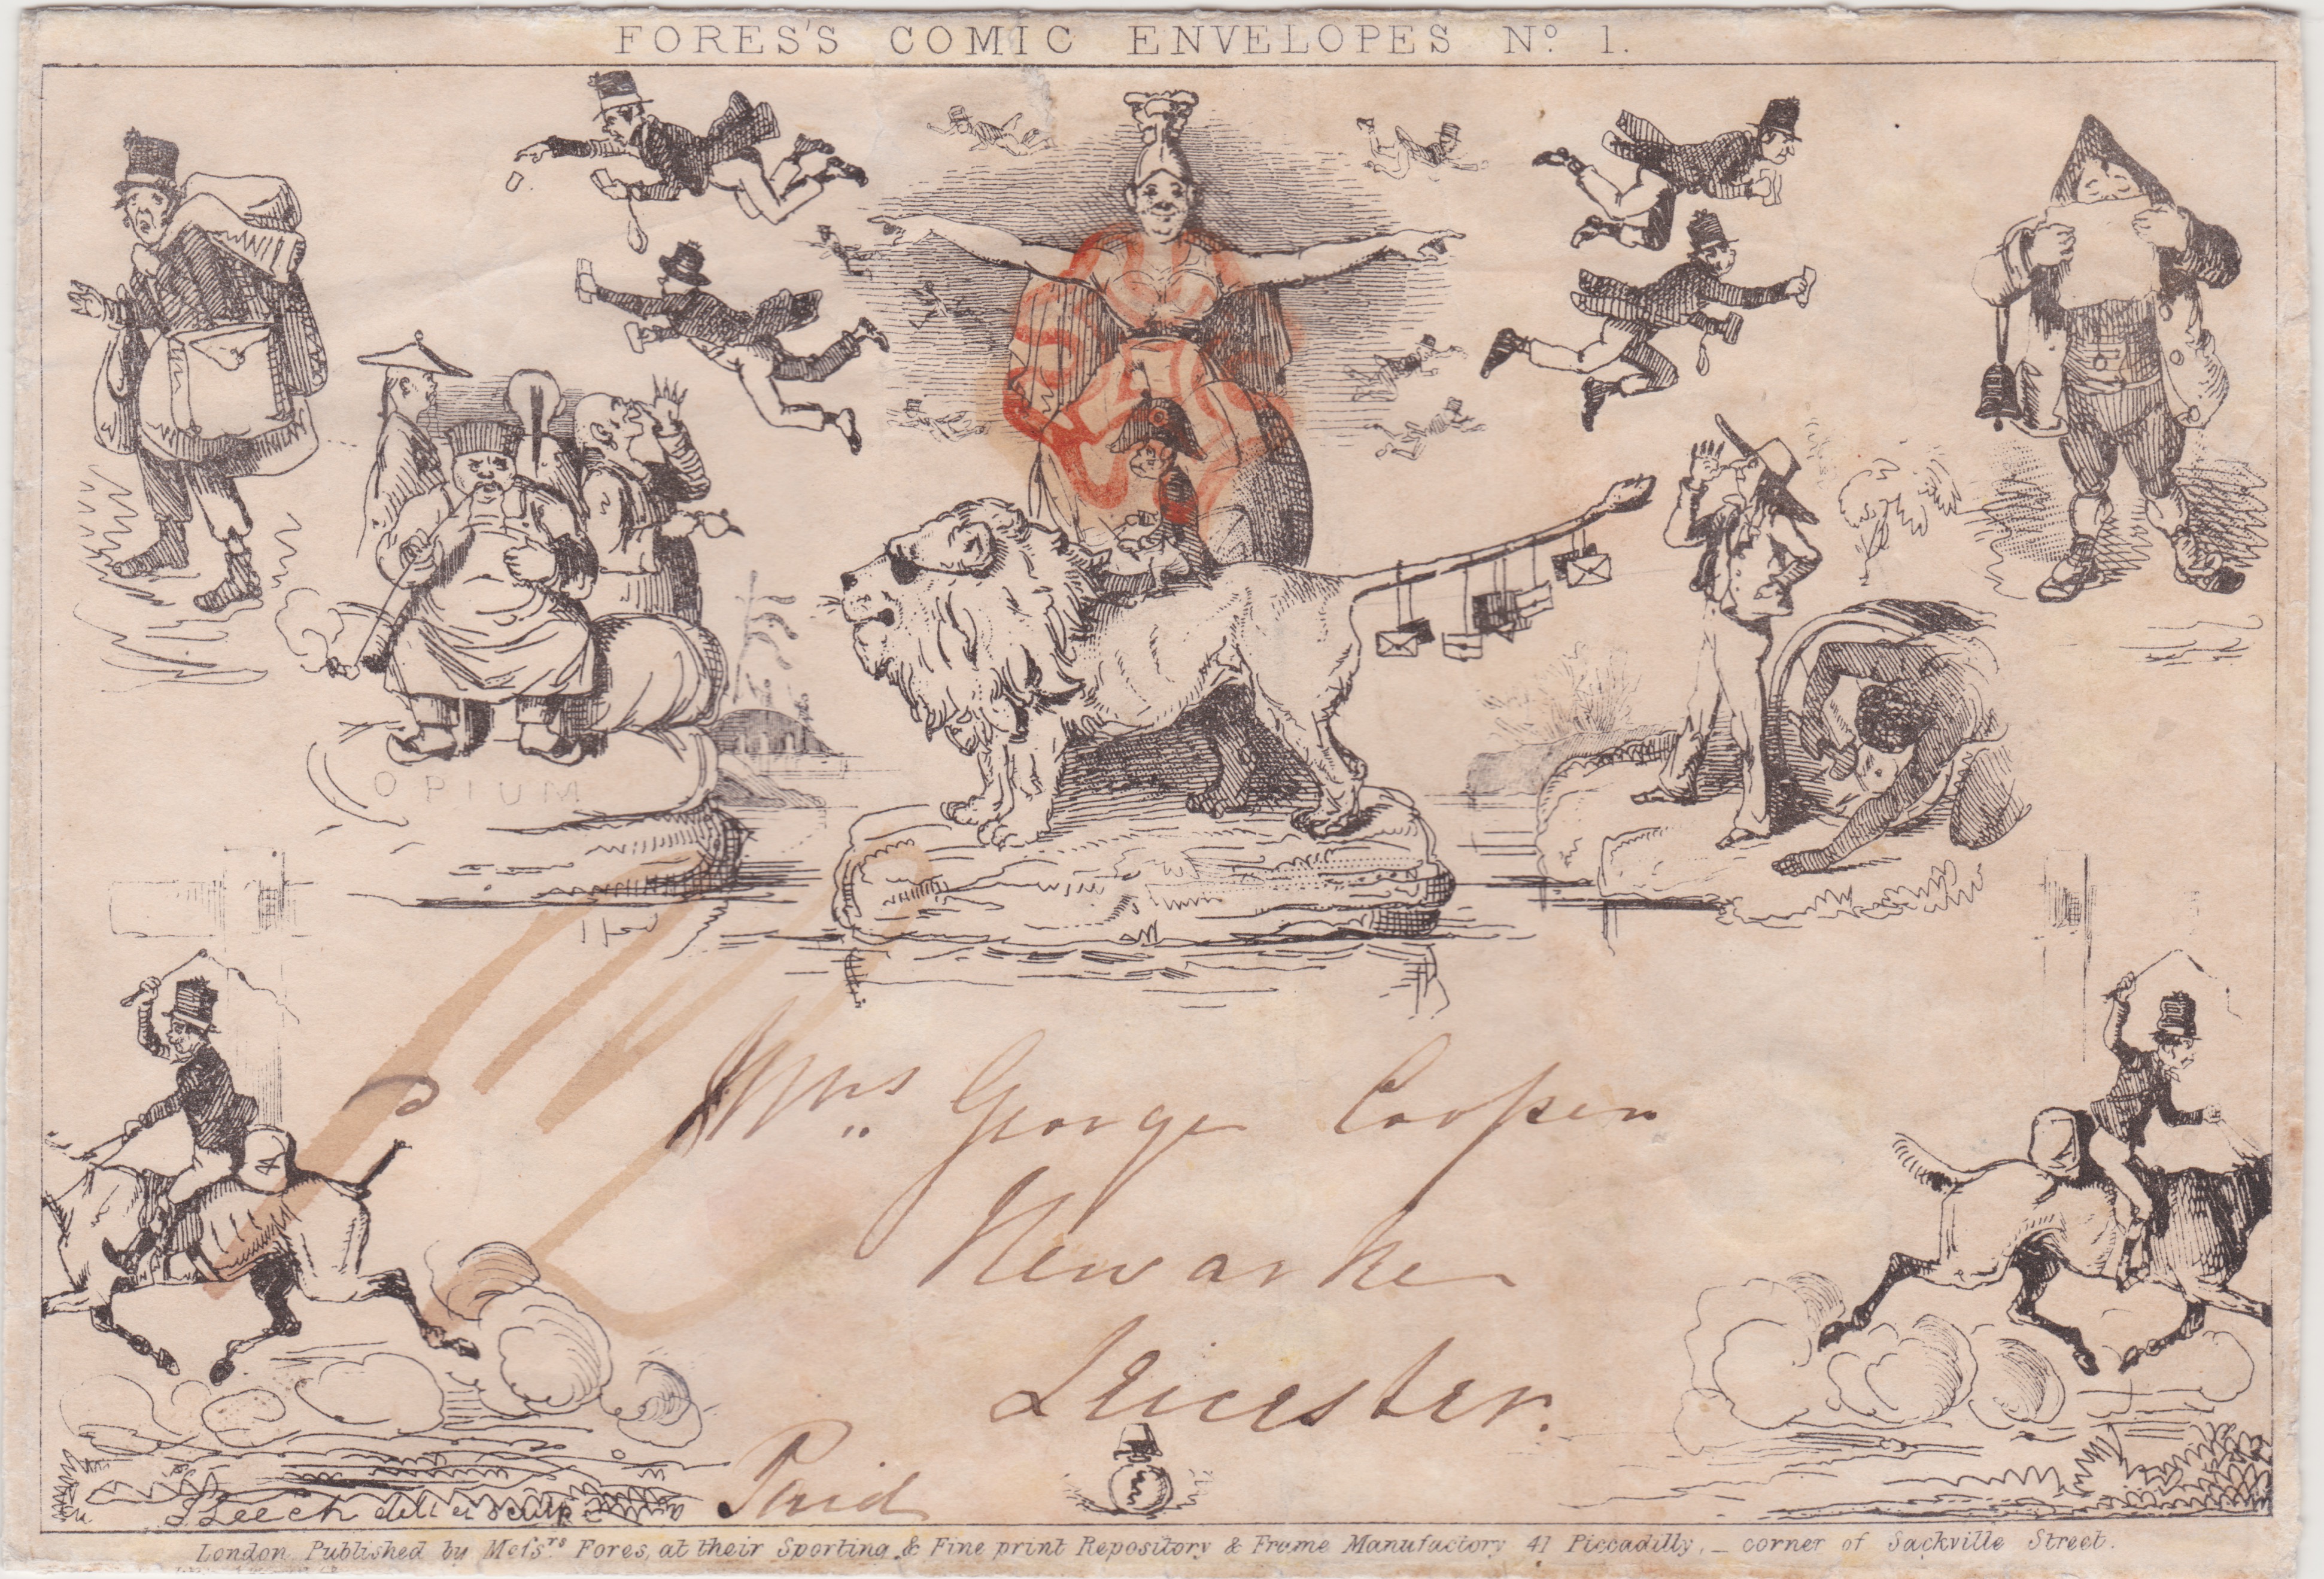 FORES'S COMIC ENVELOPES Nº 1.
OPIUM
Mrs George Cooper
Newarke
Leicester.
Paid
J Leech delt et sculpt
London Published by Mefsrs Fores, at their Sporting & Fine print Repository & Frame Manufactory 41 Piccadilly, _ corner of Sackville Street.